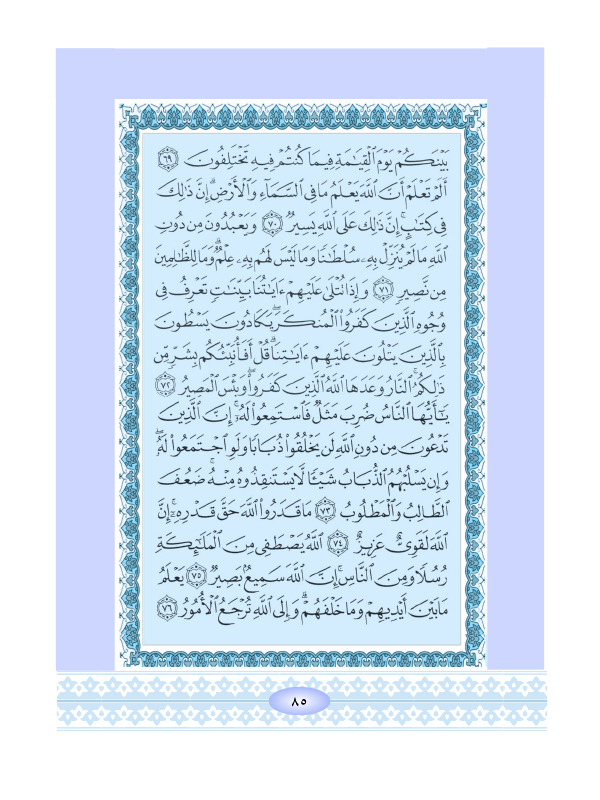 بَيْنَكُمْ يَوْمَ ٱلْقِيَٰمَةِ فِيمَا كُنتُمْ فِيهِ تَخْتَلِفُونَ ٦٩
أَلَمْ تَعْلَمْ أَنَّ ٱللَّهَ يَعْلَمُ مَا فِي ٱلسَّمَآءِ وَٱلْأَرْضِۚ إِنَّ ذَٰلِكَ
فِي كِتَٰبٍۚ إِنَّ ذَٰلِكَ عَلَى ٱللَّهِ يَسِيرٌ ٧٠ وَيَعْبُدُونَ مِن دُونِ
ٱللَّهِ مَا لَمْ يُنَزِّلْ بِهِۦ سُلْطَٰنًا وَمَا لَيْسَ لَهُم بِهِۦ عِلْمٌۗ وَمَا لِلظَّٰلِمِينَ
مِن نَّصِيرٍ ٧١ وَإِذَا تُتْلَىٰ عَلَيْهِمْ ءَايَٰتُنَا بَيِّنَٰتٍ تَعْرِفُ فِي
وُجُوهِ ٱلَّذِينَ كَفَرُوا۟ ٱلْمُنكَرَۖ يَكَادُونَ يَسْطُونَ
بِٱلَّذِينَ يَتْلُونَ عَلَيْهِمْ ءَايَٰتِنَاۗ قُلْ أَفَأُنَبِّئُكُم بِشَرٍّ مِّن
ذَٰلِكُمُۚ ٱلنَّارُ وَعَدَهَا ٱللَّهُ ٱلَّذِينَ كَفَرُوا۟ۖ وَبِئْسَ ٱلْمَصِيرُ ٧٢
يَٰٓأَيُّهَا ٱلنَّاسُ ضُرِبَ مَثَلٌ فَٱسْتَمِعُوا۟ لَهُۥٓۚ إِنَّ ٱلَّذِينَ
تَدْعُونَ مِن دُونِ ٱللَّهِ لَن يَخْلُقُوا۟ ذُبَابًا وَلَوِ ٱجْتَمَعُوا۟ لَهُۥۖ
وَإِن يَسْلُبْهُمُ ٱلذُّبَابُ شَيْـًٔا لَّا يَسْتَنقِذُوهُ مِنْهُۚ ضَعُفَ
ٱلطَّالِبُ وَٱلْمَطْلُوبُ ٧٣ مَا قَدَرُوا۟ ٱللَّهَ حَقَّ قَدْرِهِۦٓۚ إِنَّ
ٱللَّهَ لَقَوِيٌّ عَزِيزٌ ٧٤ ٱللَّهُ يَصْطَفِي مِنَ ٱلْمَلَٰٓئِكَةِ
رُسُلًا وَمِنَ ٱلنَّاسِۚ إِنَّ ٱللَّهَ سَمِيعٌۢ بَصِيرٌ ٧٥ يَعْلَمُ
مَا بَيْنَ أَيْدِيهِمْ وَمَا خَلْفَهُمْۗ وَإِلَى ٱللَّهِ تُرْجَعُ ٱلْأُمُورُ ٧٦
٨٥